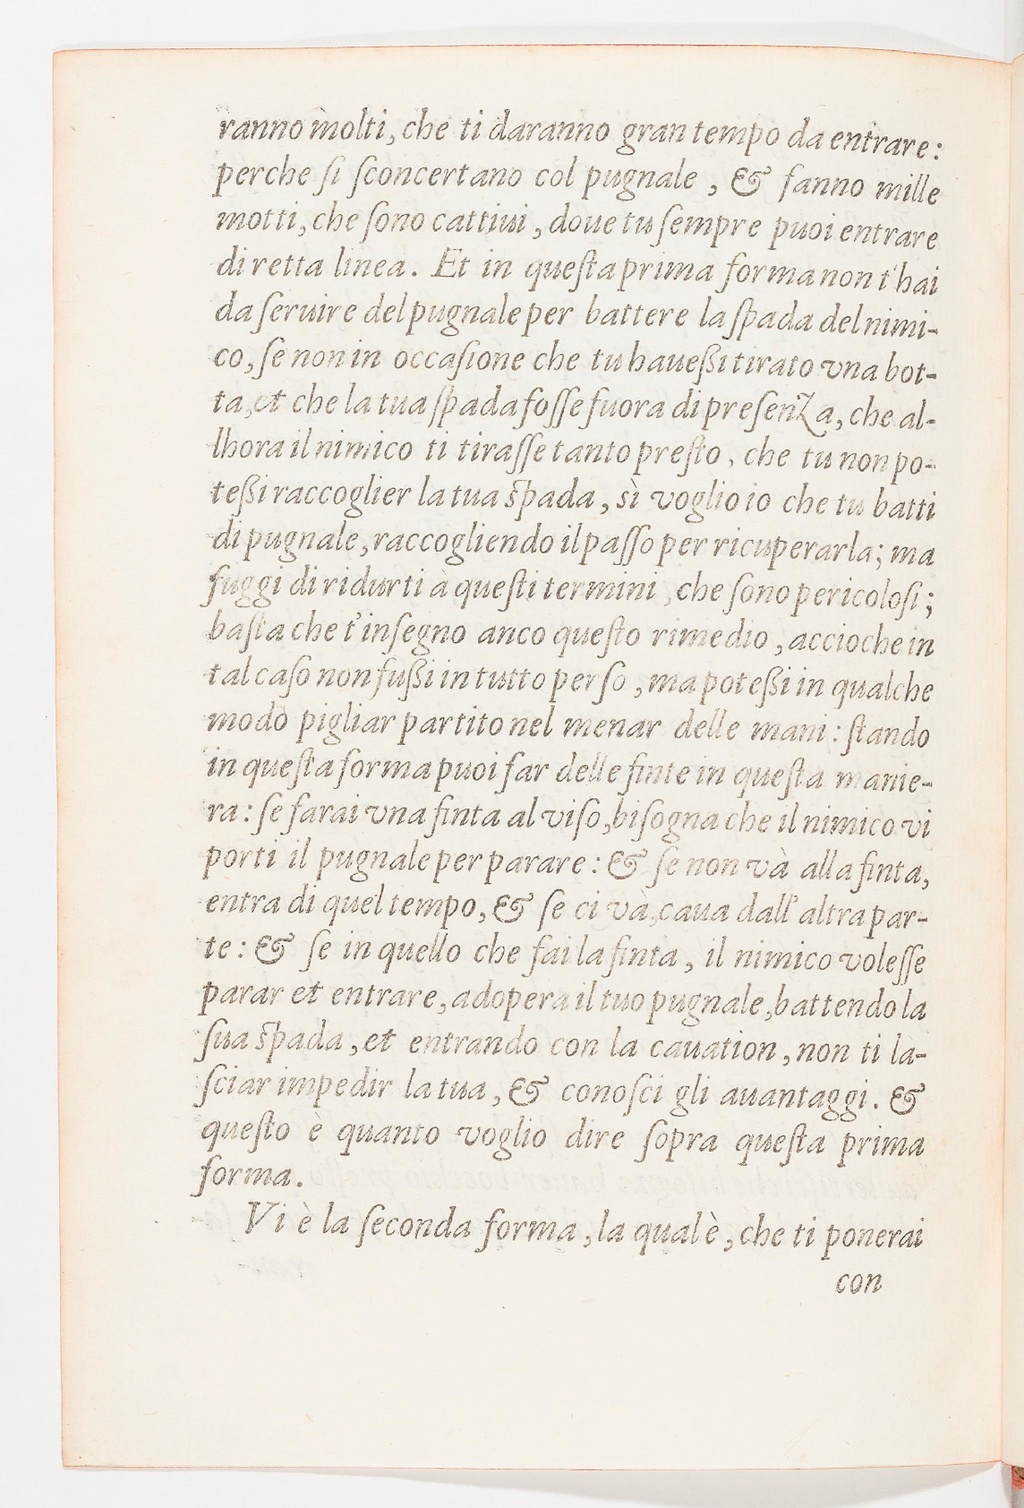 ranno molti, che ti daranno gran tempo da entrare:
perche ſi ſconcertano col pugnale, & fanno mille
motti, che ſono cattiui, doue tu ſempre puoi entrare
di retta linea. Et in queſta prima forma non t'hai
da ſeruire del pugnale per battere la ſpada del nimi-
co, ſe non in occaſione che tu haueßi tirato vna bot-
ta, et che la tua ſpada foſſe fuora di preſenza, che al-
lhora il nimico ti tiraſſe tanto preſto, che tu non po-
teßi raccoglier la tua ſpada, sì voglio io che tu batti
di pugnale, raccogliendo il paſſo per ricuperarla; ma
fuggi di ridurti à queſti termini, che ſono pericoloſi;
baſta che t'inſegno anco queſto rimedio, accioche in
tal caſo non fußi in tutto perſo, ma poteßi in qualche
modo pigliar partito nel menar delle mani: ſtando
in queſta forma puoi far delle finte in queſta manie-
ra: ſe farai vna finta al viſo, biſogna che il nimico vi
porti il pugnale per parare: & ſe non và alla finta,
entra di quel tempo, & ſe ci và, caua dall'altra par-
te: & ſe in quello che fai la finta, il nimico voleſſe
parar et entrare, adopera il tuo pugnale, battendo la
ſua ſpada, et entrando con la cauation, non ti la-
ſciar impedir la tua, & conoſci gli auantaggi. &
queſto è quanto voglio dire ſopra queſta prima
forma.
Vi è la ſeconda forma, la qual è, che ti ponerai
con